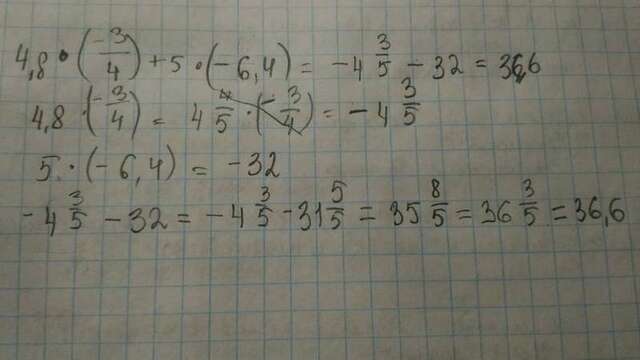 4,8 · (-3/4) + 5 · (-6,4) = -4 3/5 - 32 = 36,6
4,8 · (-3/4) = 4 4/5 · (-3/4) = -4 3/5
5 · (-6,4) = -32
-4 3/5 - 32 = -4 3/5 - 31 5/5 = 35 8/5 = 36 3/5 = 36,6